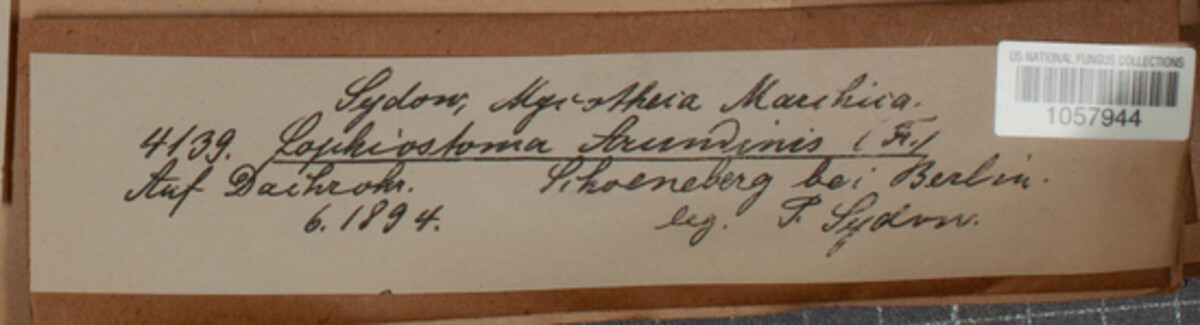 Sydow, Mycotheca Marchica.
4139. Lophiostoma Arundinis (Fr.)
Auf Dachrohr. Schoeneberg bei Berlin.
6. 1894. leg. P. Sydow.
US NATIONAL FUNGUS COLLECTIONS
1057944